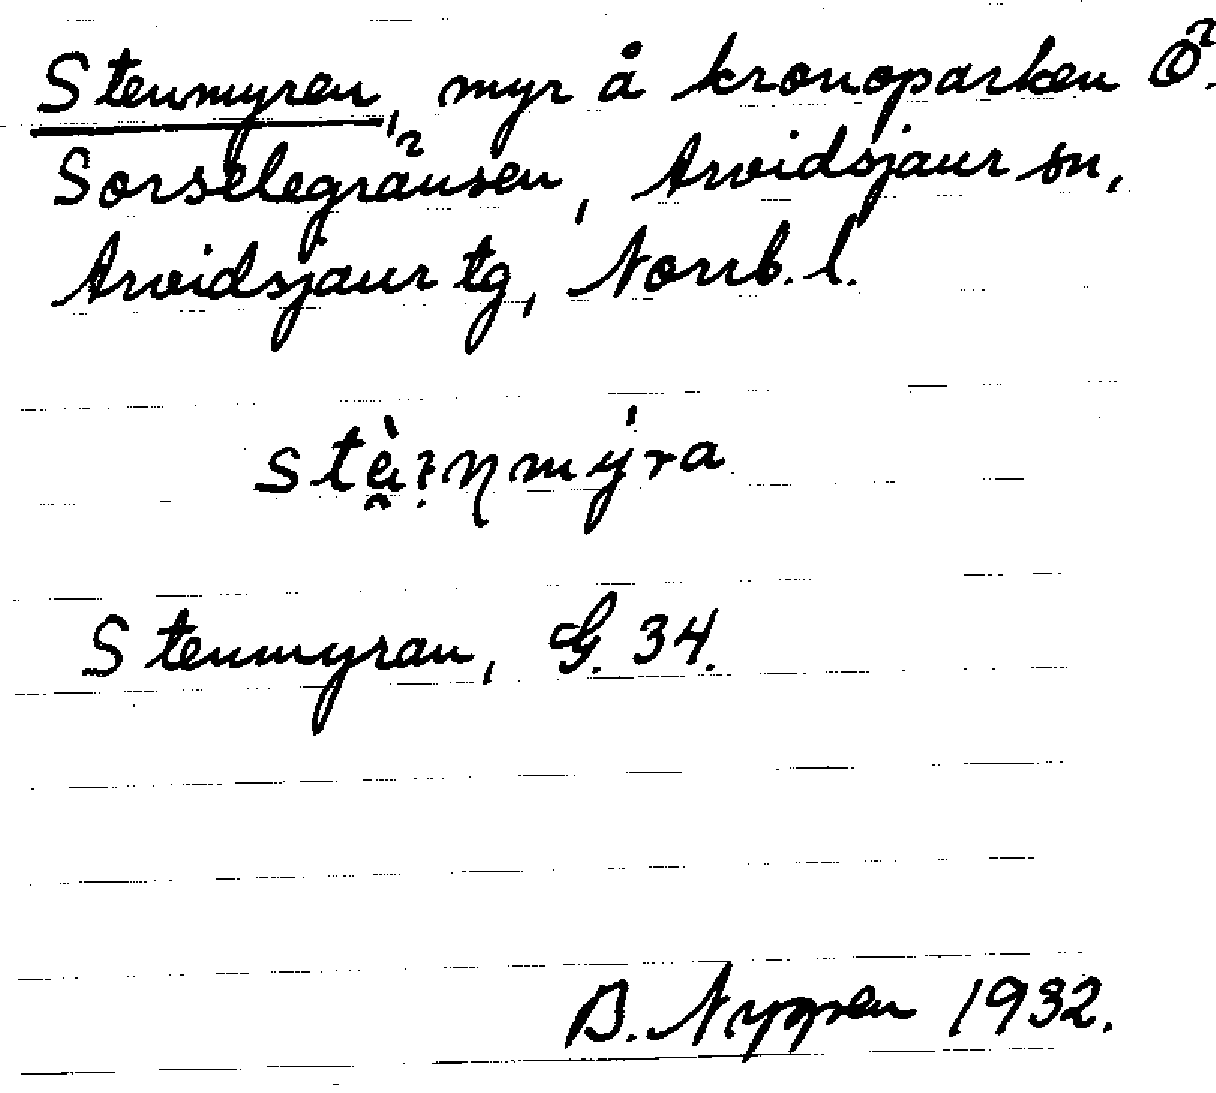 Stenmyren, myr å kronoparken Ö.
Sorselegränsen, Arvidsjaur sn,
Arvidsjaur tg, Norrb. l.
Stenmyran, G. 34.
B. Nyppen 1932.